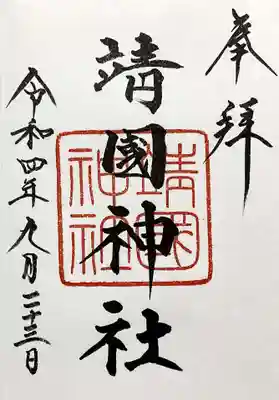 奉拝
靖國神社
靖国神社
令和四年九月二十三日